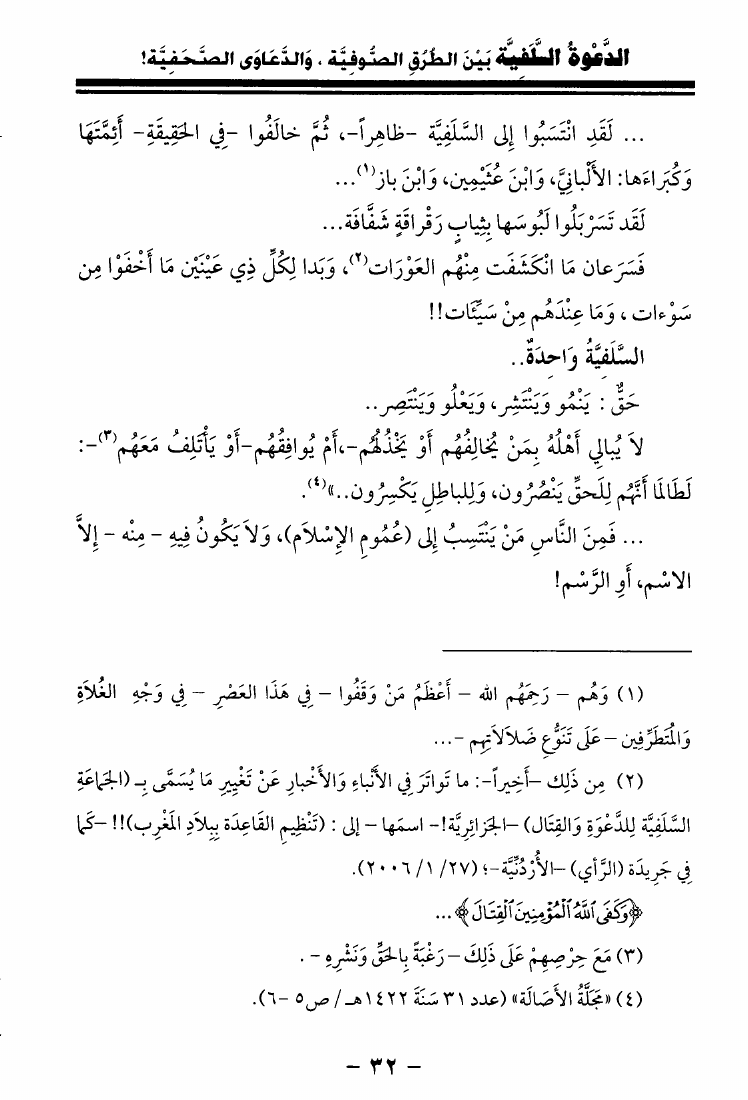 الدَّعْوَةُ السَّلَفِيَّة بَيْنَ الطُّرُقِ الصُّوفِيَّة ، وَالدَّعَاوَى الصَّحَفِيَّة!
... لَقَدِ انْتَسَبُوا إِلى السَّلَفِيَّة -ظاهِراً-، ثُمَّ خالَفُوا -فِي الحَقِيقَةِ- أَئِمَّتَهَا
وَكُبَرَاءَها: الأَلْبانِيَّ، وَابْنَ عُثَيْمِين، وَابْنَ باز(١)...
لَقَد تَسَرْبَلُوا لَبُوسَها بِثِيابٍ رَقْراقَةٍ شَفَّافَة...
فَسَرعان مَا انْكَشَفَت مِنْهُم العَوْرَات(٢)، وَبَدا لِكُلِّ ذِي عَيْنَيْن مَا أَخْفَوْا مِن
سَوْءات ، وَمَا عِنْدَهُم مِنْ سَيِّئَات!!
السَّلَفِيَّةُ وَاحِدَةٌ..
حَقٌّ : يَنْمُو وَيَنْتَشِر، وَيَعْلُو وَيَنْتَصِر..
لاَ يُبالِي أَهْلُهُ بِمَنْ يُخالِفُهُم أَوْ يَخْذُلُهُم-،أَمْ يُوافِقُهُم-أَوْ يَأْتَلِفُ مَعَهُم(٣)-:
لَطَالَمَا أَنَّهُم لِلَحقِّ يَنْصُرُون، وَلِلباطِلِ يَكْسِرُون..»(٤).
... فَمِنَ النَّاسِ مَنْ يَنْتَسِبُ إِلى (عُمُومِ الإِسْلاَم)، وَلاَ يَكُونُ فِيهِ - مِنْه - إِلاَّ
الاسْم، أَوِ الرَّسْم!
(١) وَهُم - رَحِمَهُم الله - أَعْظَمُ مَنْ وَقَفُوا - فِي هَذَا العَصْرِ - فِي وَجْهِ الغُلاَةِ
وَالْمُتَطَرِّفِين - عَلَى تَنَوُّعِ ضَلاَلاَتِهِم -...
(٢) مِن ذَلِكَ -أَخِيراً-: ما تَواتَرَ فِي الأَنْباءِ وَالأَخْبارِ عَنْ تَغْيِيرِ مَا يُسَمَّى بِـ (الجَماعَةِ
السَّلَفِيَّة لِلدَّعْوَةِ وَالقِتَال) -الجَزائِرِيَّة!- اسمَها - إِلى : (تَنْظِيمِ القَاعِدَة بِبِلاَدِ المَغْرِب)!! -كَما
فِي جَرِيدَة (الرَّأي) -الأُرْدُنِّيَّة-؛ (٢٧/ ١/ ٢٠٠٦).
﴿وَكَفَى ٱللَّهُ ٱلْمُؤْمِنِينَ ٱلْقِتَالَ﴾...
(٣) مَعَ حِرْصِهِمْ عَلَى ذَلِكَ - رَغْبَةً بِالحَقِّ وَنَشْرِهِ - .
(٤) «مَجَلَّةُ الأَصَالَة» (عدد ٣١ سَنَةَ ١٤٢٢هـ/ ص٥ -٦).
- ٣٢ -